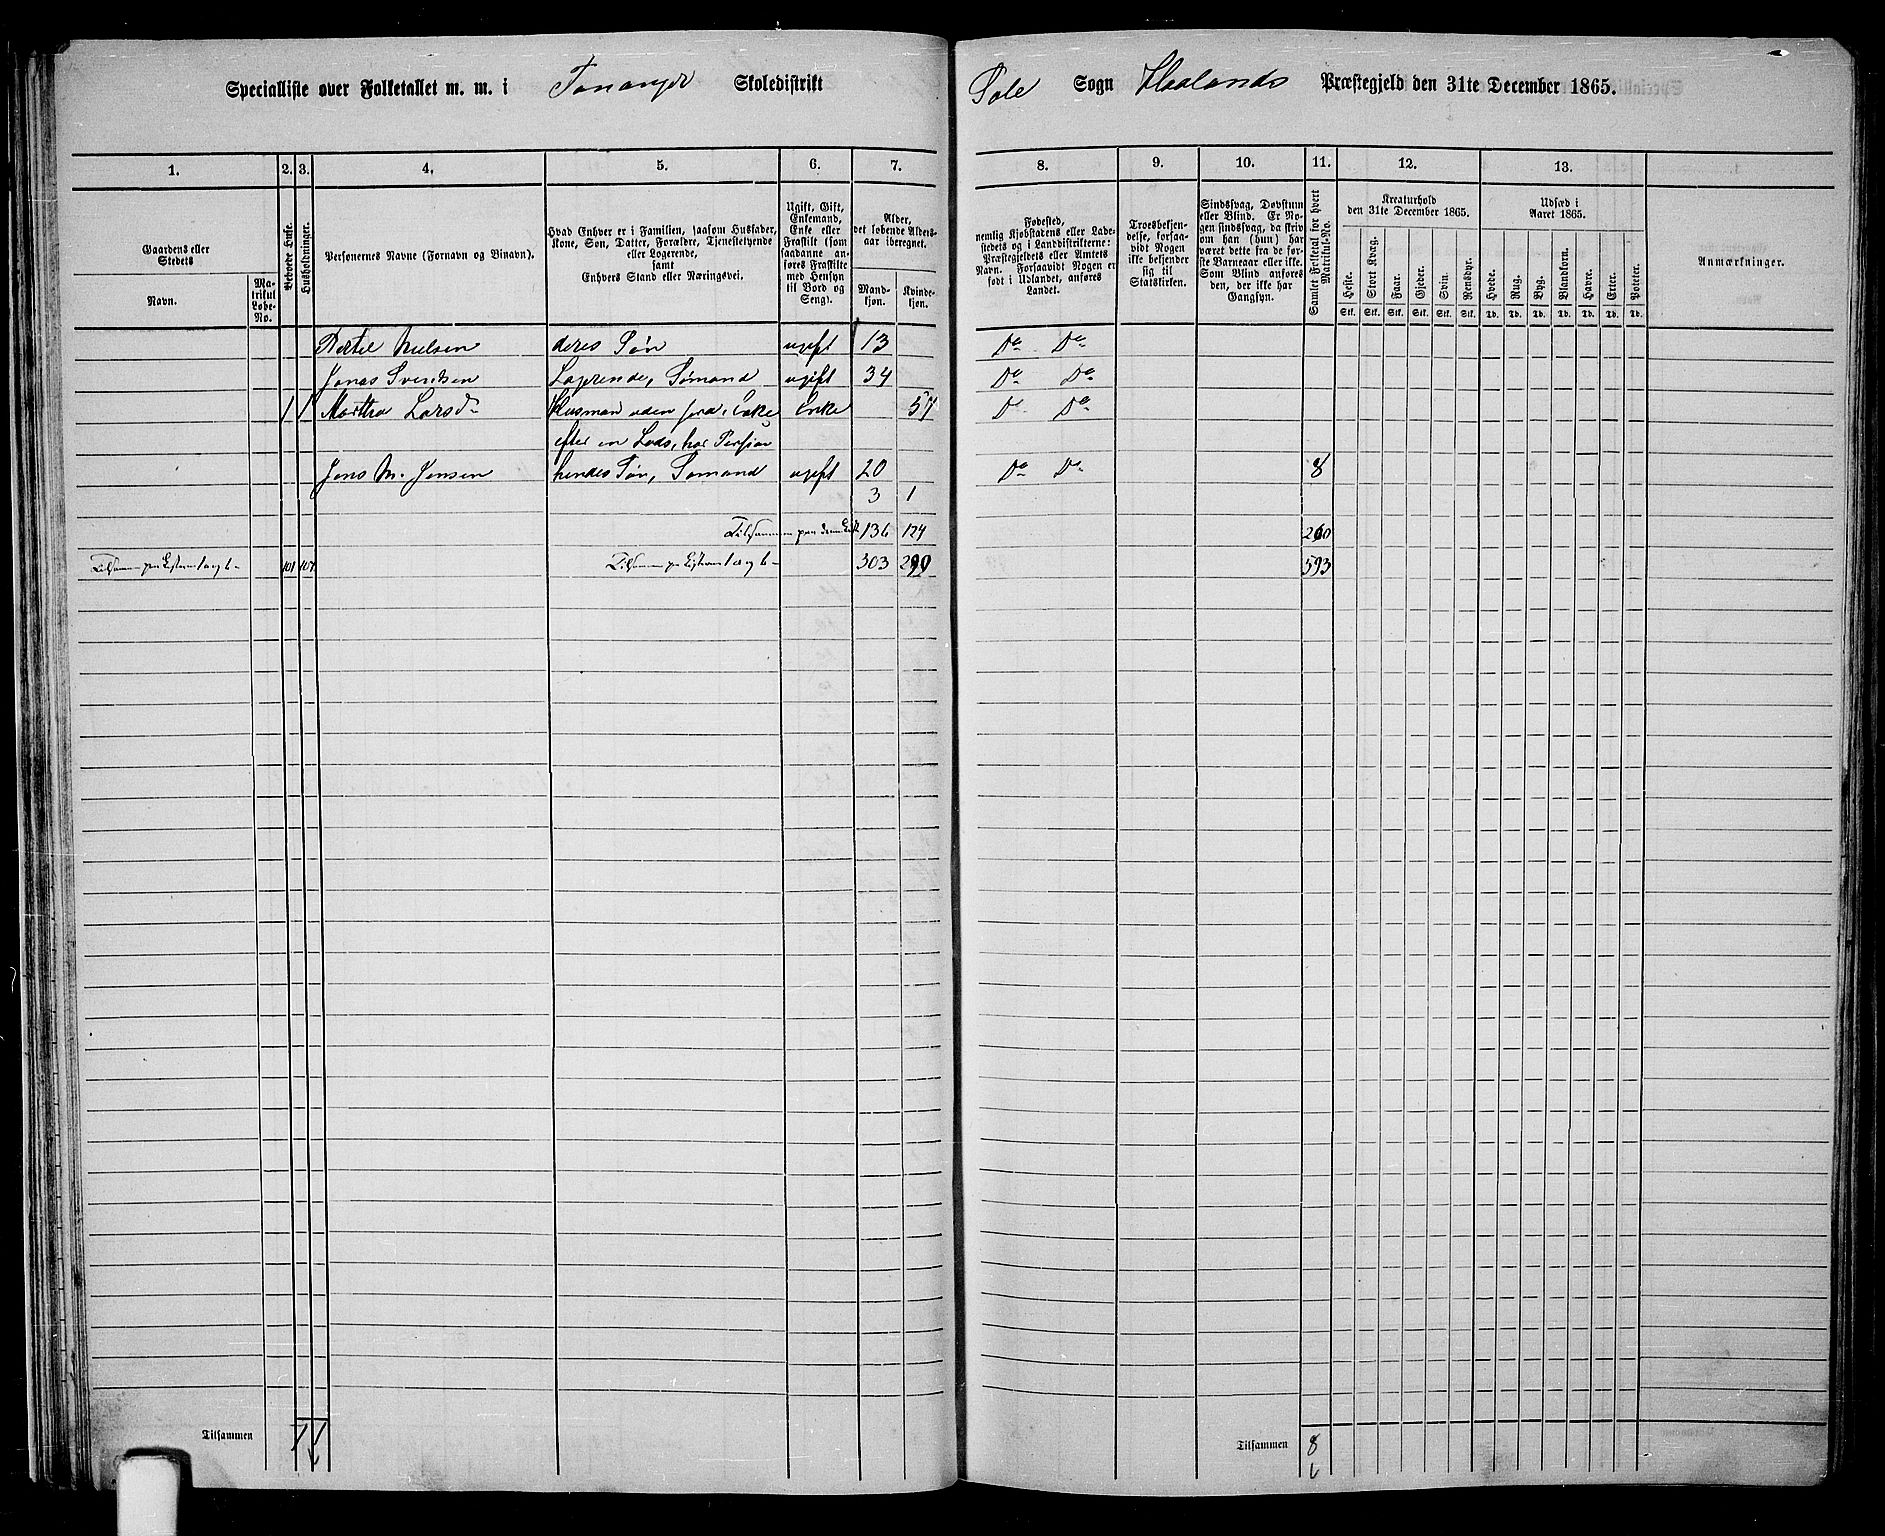 Specialliste over Folketallet m. m. i Tananger Skoledistrikt
Sole Sogn Haalands Præstegjeld den 31te December 1865.
1. 2. 3. 4. 5. 6. 7. 8. 9. 10. 11. 12. 13.
Gaardens eller Stedets
Navn.
Matrikul Løbe-No.
Beboede Huse.
Husholdninger.
Personernes Navne (Fornavn og Binavn).
Hvad Enhver er i Familien, saasom Husfader,
Kone, Søn, Datter, Forældre, Tjenestetyende
eller Logerende,
samt
Enhvers Stand eller Næringsvei.
Ugift, Gift,
Enkemand,
Enke eller
Fraskilt (som
saadanne an-
føres Fraskilte
med Hensyn
til Bord og
Seng).
Alder,
det løbende Alders-
aar iberegnet.
Mand-
kjøn.
Kvinde-
kjøn.
Fødested,
nemlig Kjøbstadens eller Lade-
stedets og i Landdistrikterne:
Præstegjeldets eller Amtets
Navn. Forsaavidt Nogen er
født i Udlandet, anføres
Landet.
Troesbekjen-
delse, forsaa-
vidt Nogen
ikke bekjender
sig til
Statskirken.
Sindssvag, Døvstum
eller Blind. Er No-
gen sindssvag, da skriv
om han (hun) har
været dette fra de før-
ste Barneaar eller ikke.
Som Blind anføres
den, der ikke har
Gangsyn.
Samlet Folketal for hvert
Matrikul-No.
Kreaturhold
den 31te December 1865.
Heste. Stort Kvæg. Faar. Gjeder. Svin. Rensdyr.
Stk. Stk. Stk. Stk. Stk. Stk.
Udsæd i
Aaret 1865.
Hvede. Rug. Byg. Blandkorn. Havre. Erter. Poteter.
Td. Td. Td. Td. Td. Td. Td.
Anmærkninger.
Bertil Nielsen deres Søn ugift 13 Do Do
Jonas Svendsen Logerende, Sømand ugift 34 Do Do
1 1 Martha Larsd. Husmand uden Jord, Enke Enke 57 Do Do
efter en Lods, har Pension
Jens M. Jensen hendes Søn, Sømand ugift 20 Do Do 8
3 1
Tilsammen paa denne Liste 136 124 260
Tilsammen paa Listerne 1 a og b 101 107 Tilsammen paa Listerne 1 a og b 303 290 593
Tilsammen 1 1
Tilsammen 8